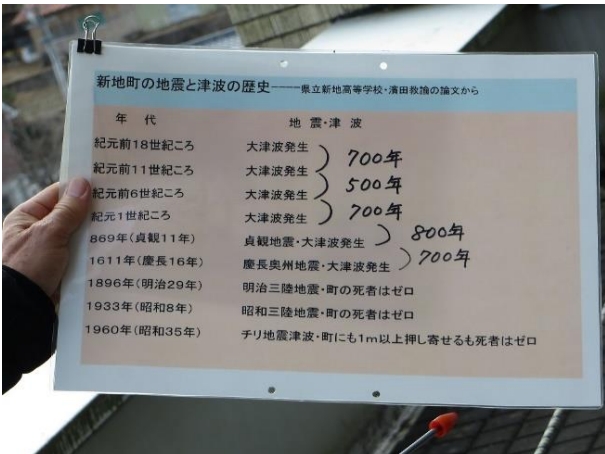 新地町の地震と津波の歴史――県立新地高等学校・濱田教諭の論文から
年 代 地 震・津 波
紀元前18世紀ころ 大津波発生
700年
紀元前11世紀ころ 大津波発生
500年
紀元前6世紀ころ 大津波発生
700年
紀元1世紀ころ 大津波発生
800年
869年(貞観11年) 貞観地震・大津波発生
700年
1611年(慶長16年) 慶長奥州地震・大津波発生
1896年(明治29年) 明治三陸地震・町の死者はゼロ
1933年(昭和8年) 昭和三陸地震・町の死者はゼロ
1960年(昭和35年) チリ地震津波・町にも1m以上押し寄せるも死者はゼロ